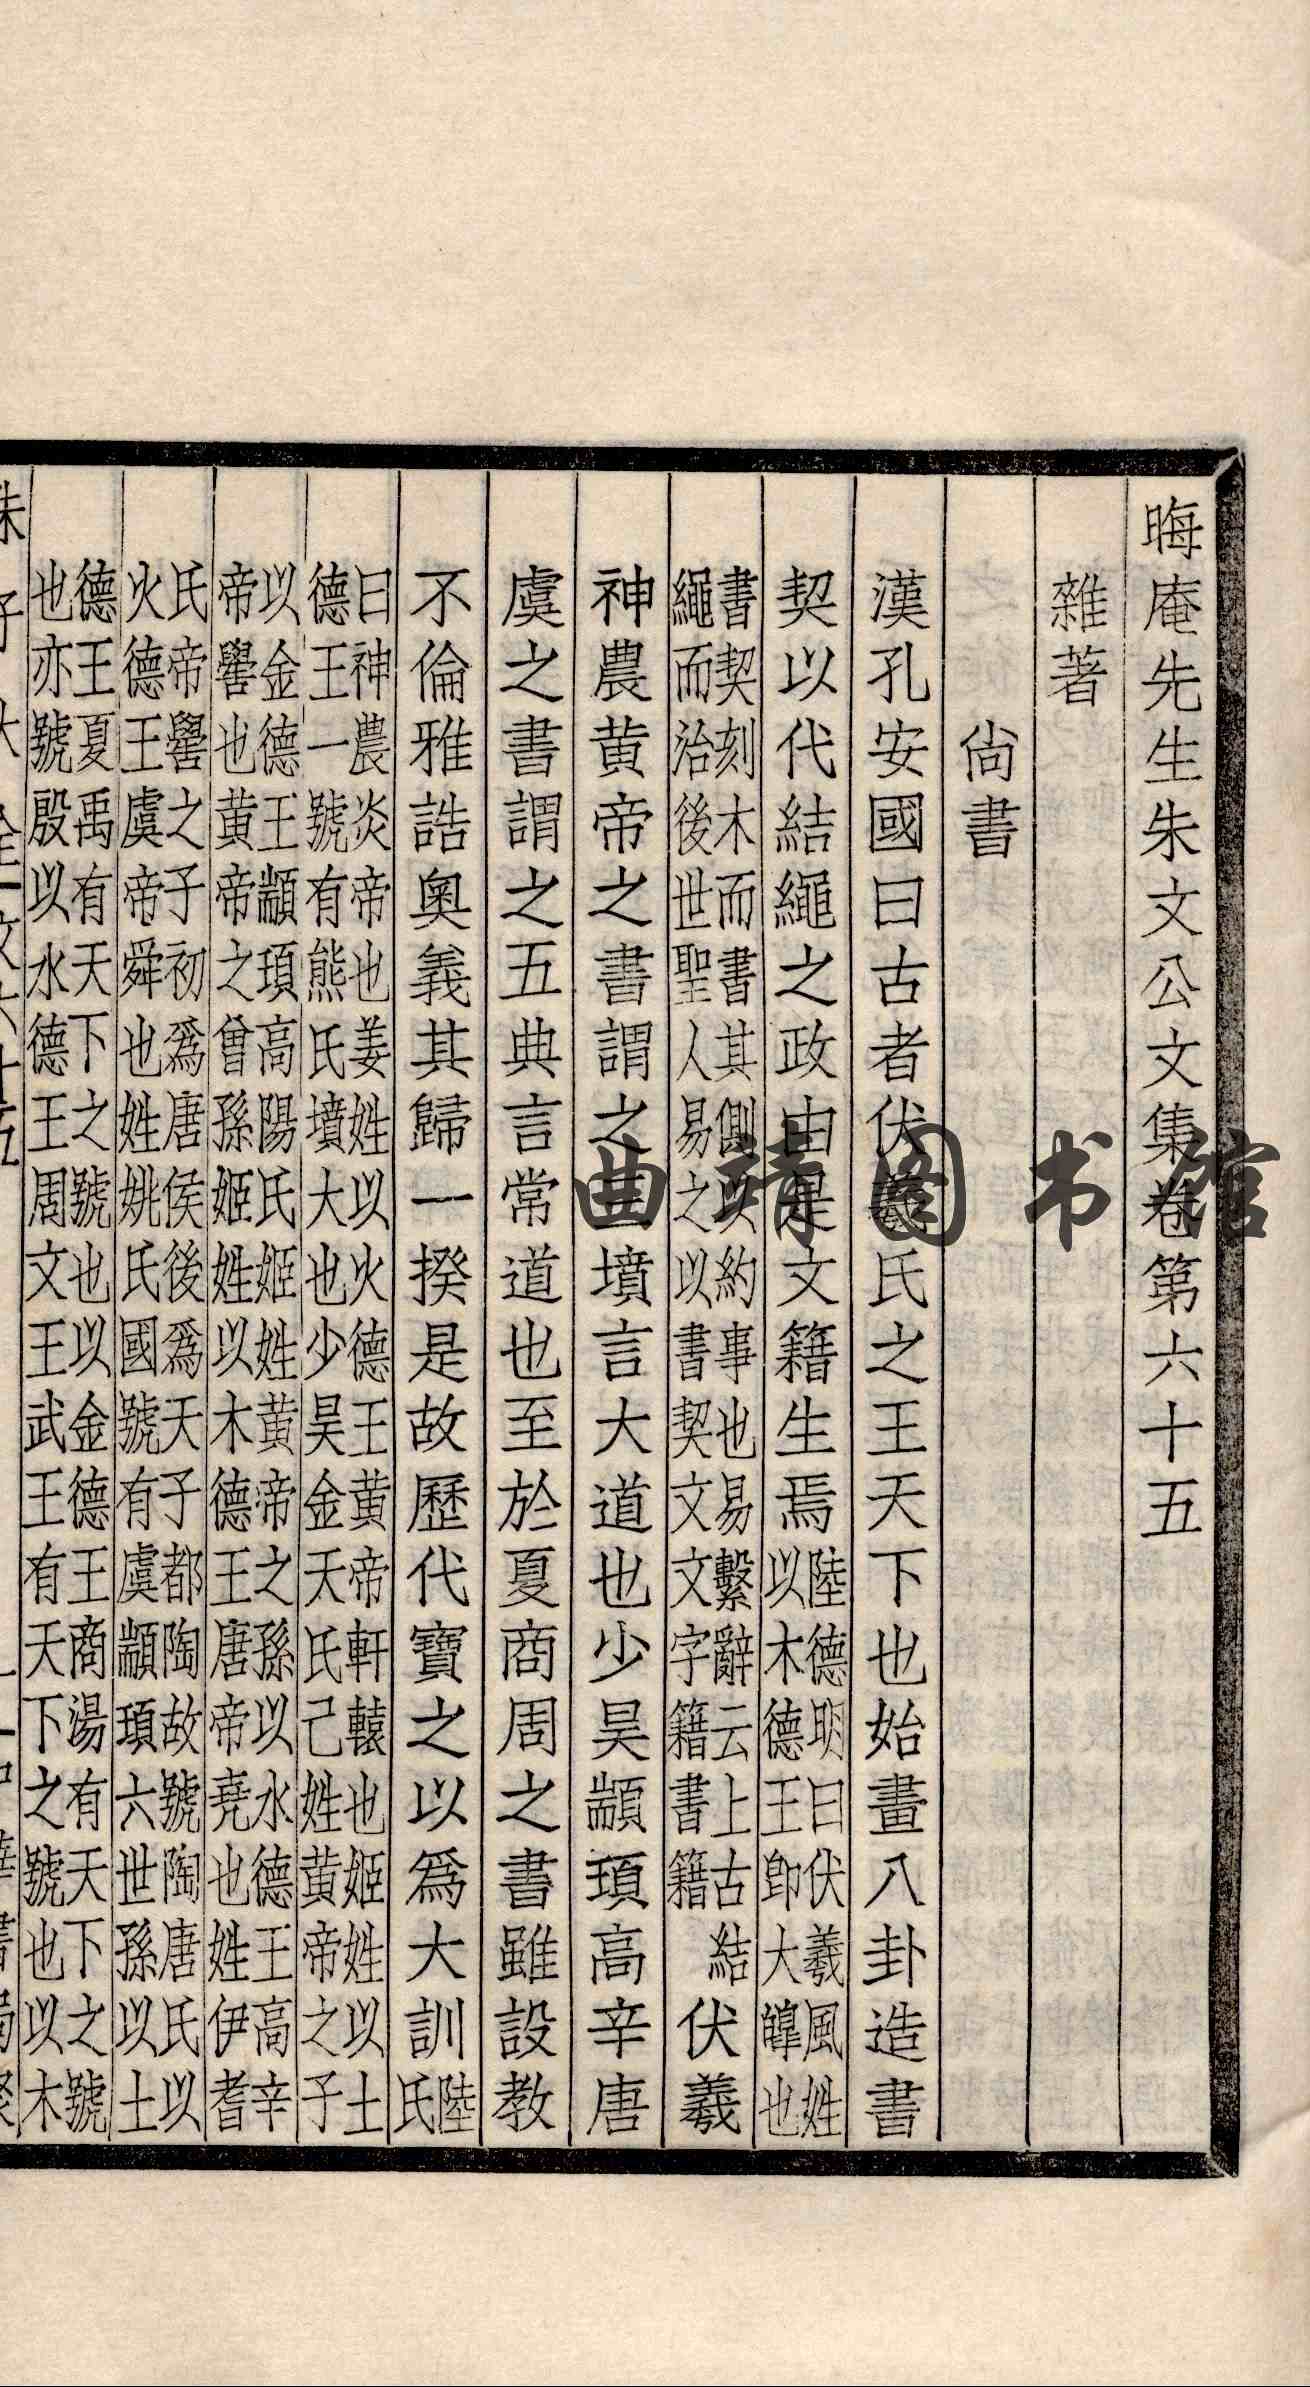 晦庵先生朱文公文集卷第六十五
雜著
尚書
漢孔安國曰古者伏羲氏之王天下也始畫八卦造書
契以代結繩之政由是文籍生焉
陸德明曰伏羲風姓
以木德王卽大皥也
書契刻木而書其側以約事也易繫辭云上古結
繩而治後世聖人易之以書契文文字籍書籍
伏羲
神農黄帝之書謂之三墳言大道也少昊顓頊高辛唐
虞之書謂之五典言常道也至於夏商周之書雖設教
不倫雅誥奧義其歸一揆是故歷代寶之以爲大訓
陸
氏
曰神農炎帝也姜姓以火德王黄帝軒轅也姬姓以土
德王一號有熊氏墳大也少昊金天氏己姓黄帝之子
以金德王顓頊高陽氏姬姓黄帝之孫以水德王高辛
帝嚳也黄帝之曾孫姬姓以木德王唐帝堯也姓伊耆
氏帝嚳之子初爲唐侯後爲天子都陶故號陶唐氏以
火德王虞帝舜也姓姚氏國號有虞顓頊六世孫以土
德王夏禹有天下之號也以金德王商湯有天下之號
也亦號殷以水德王周文王武王有天下之號也以木
曲靖图书馆